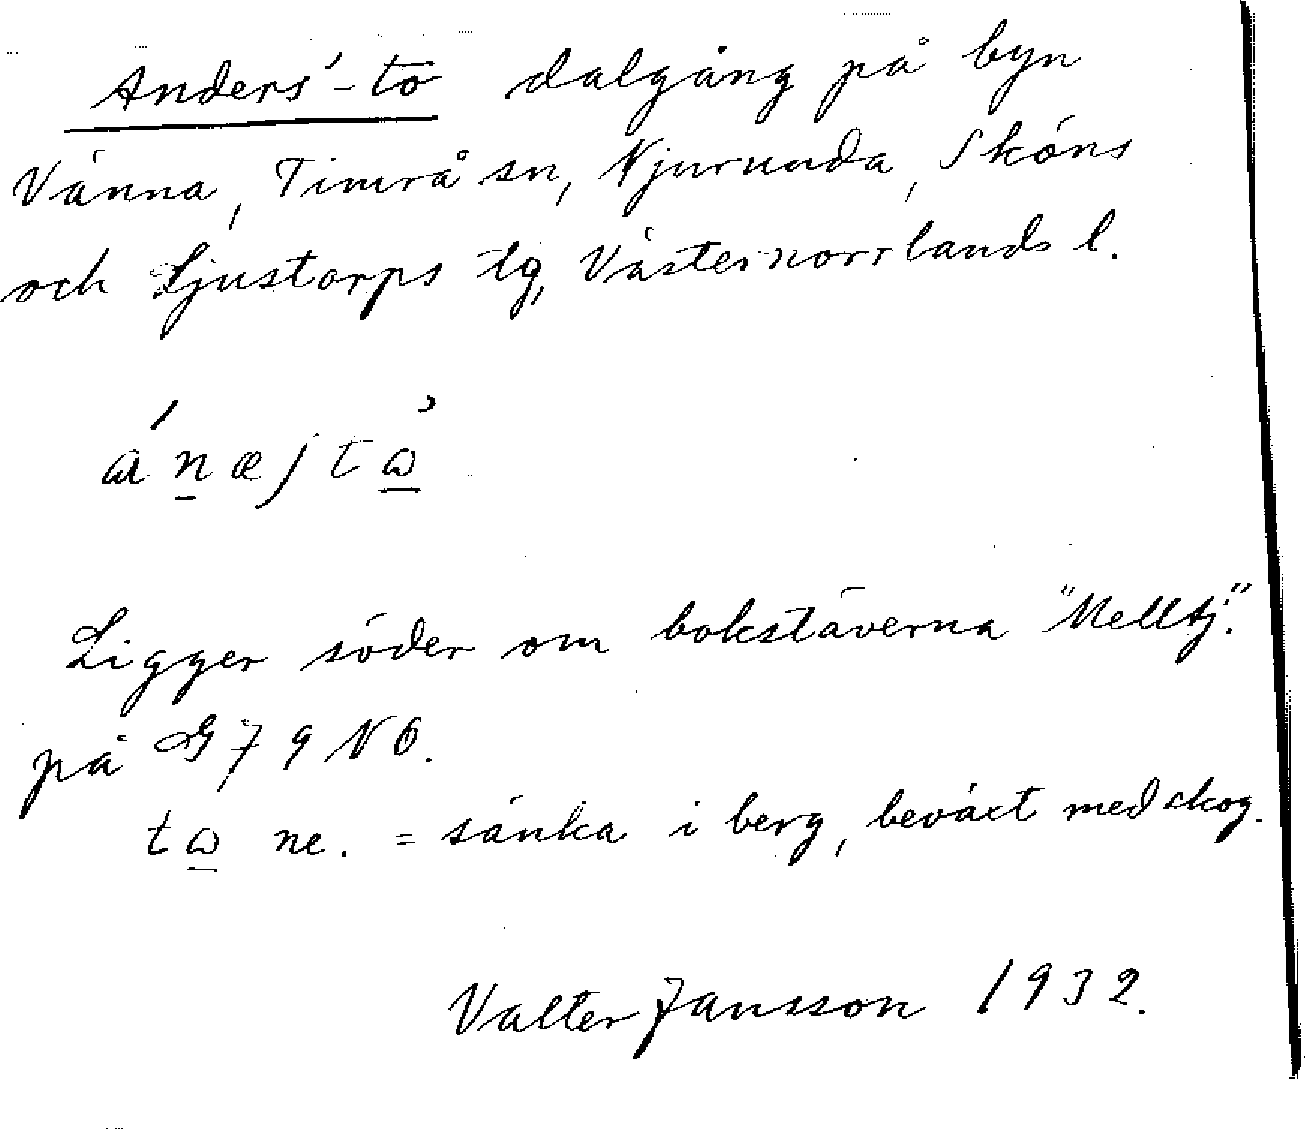 Anders'-to dalgång på byn
Vänna, Timrå sn, Njurunda, Sköns
och Ljustorps tg, Västernorrlands l.
Ligger söder om bokstäverna "Melltj."
på G79 NO.
ne. = sänka i berg, beväxt med skog.
Valter Jansson 1932.